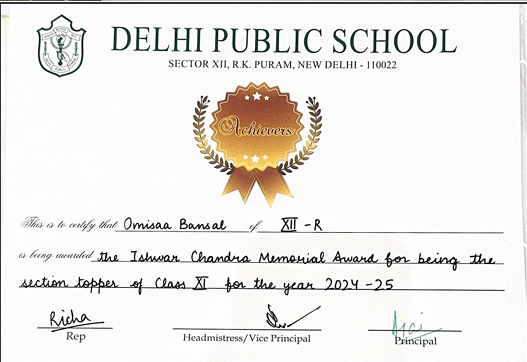 DELHI PUBLIC SCHOOL
SECTOR XII, R.K. PURAM, NEW DELHI - 110022
Achievers
This is to certify that Omisaa Bansal of XII - R
is being awarded the Ishwar Chandra Memorial Award for being the
section topper of Class XI for the year 2024-25
Richa
Rep Headmistress/Vice Principal Principal